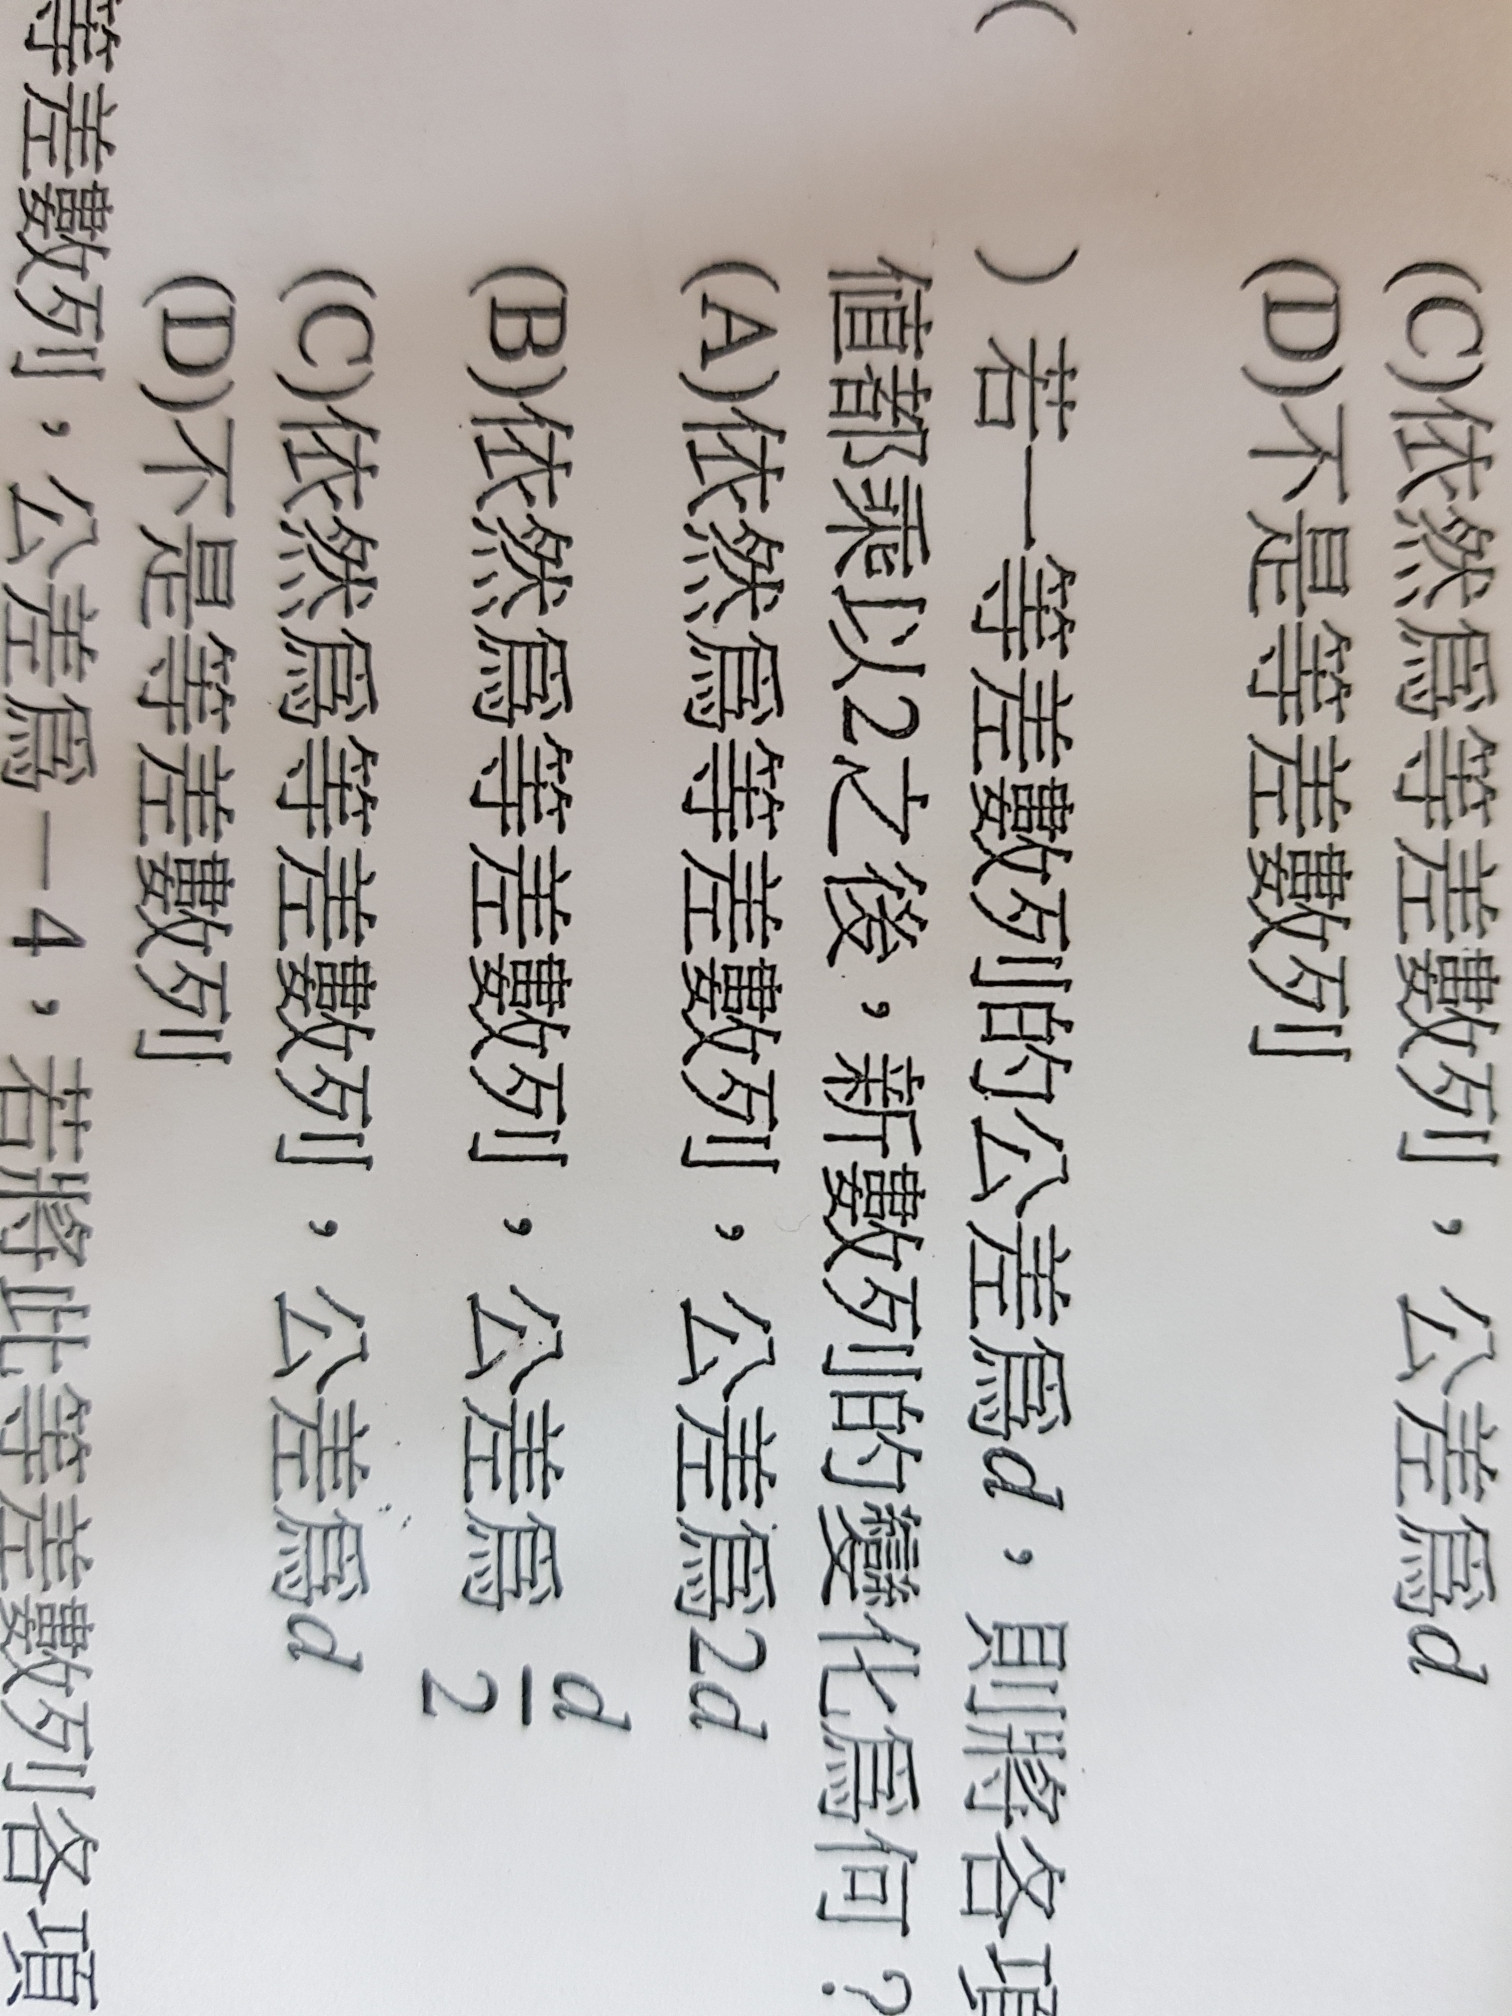 (C)依然為等差數列，公差為d
(D)不是等差數列
( )若一等差數列的公差為d，則將各項
值都乘以2之後，新數列的變化為何？
(A)依然為等差數列，公差為2d
(B)依然為等差數列，公差為d/2
(C)依然為等差數列，公差為d
(D)不是等差數列
等差數列，公差為－4，若將此等差數列各項